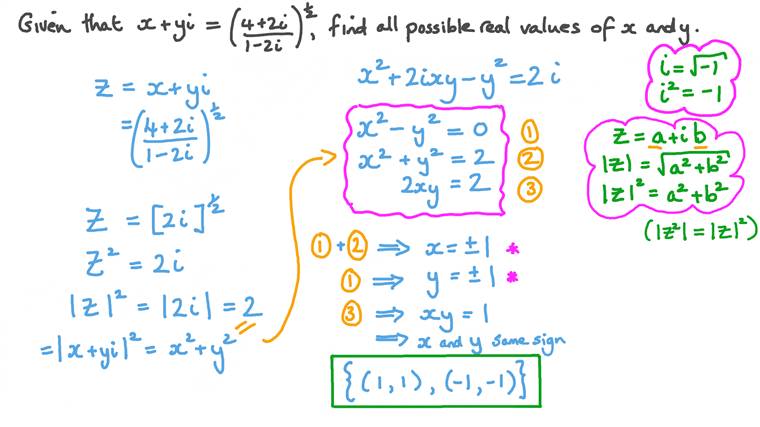 Given that x + yi = ((4+2i)/(1-2i))^½, find all possible real values of x and y.
z = x + yi
= ((4+2i)/(1-2i))^½
z = [2i]^½
z² = 2i
|z|² = |2i| = 2
= |x + yi|² = x² + y²
x² + 2ixy - y² = 2i
x² - y² = 0 ①
x² + y² = 2 ②
2xy = 2 ③
① + ② ⟹ x = ±1 *
① ⟹ y = ±1 *
③ ⟹ xy = 1
⟹ x and y same sign
{(1, 1), (-1, -1)}
i = √-1
i² = -1
z = a + ib
|z| = √(a² + b²)
|z|² = a² + b²
(|z²| = |z|²)